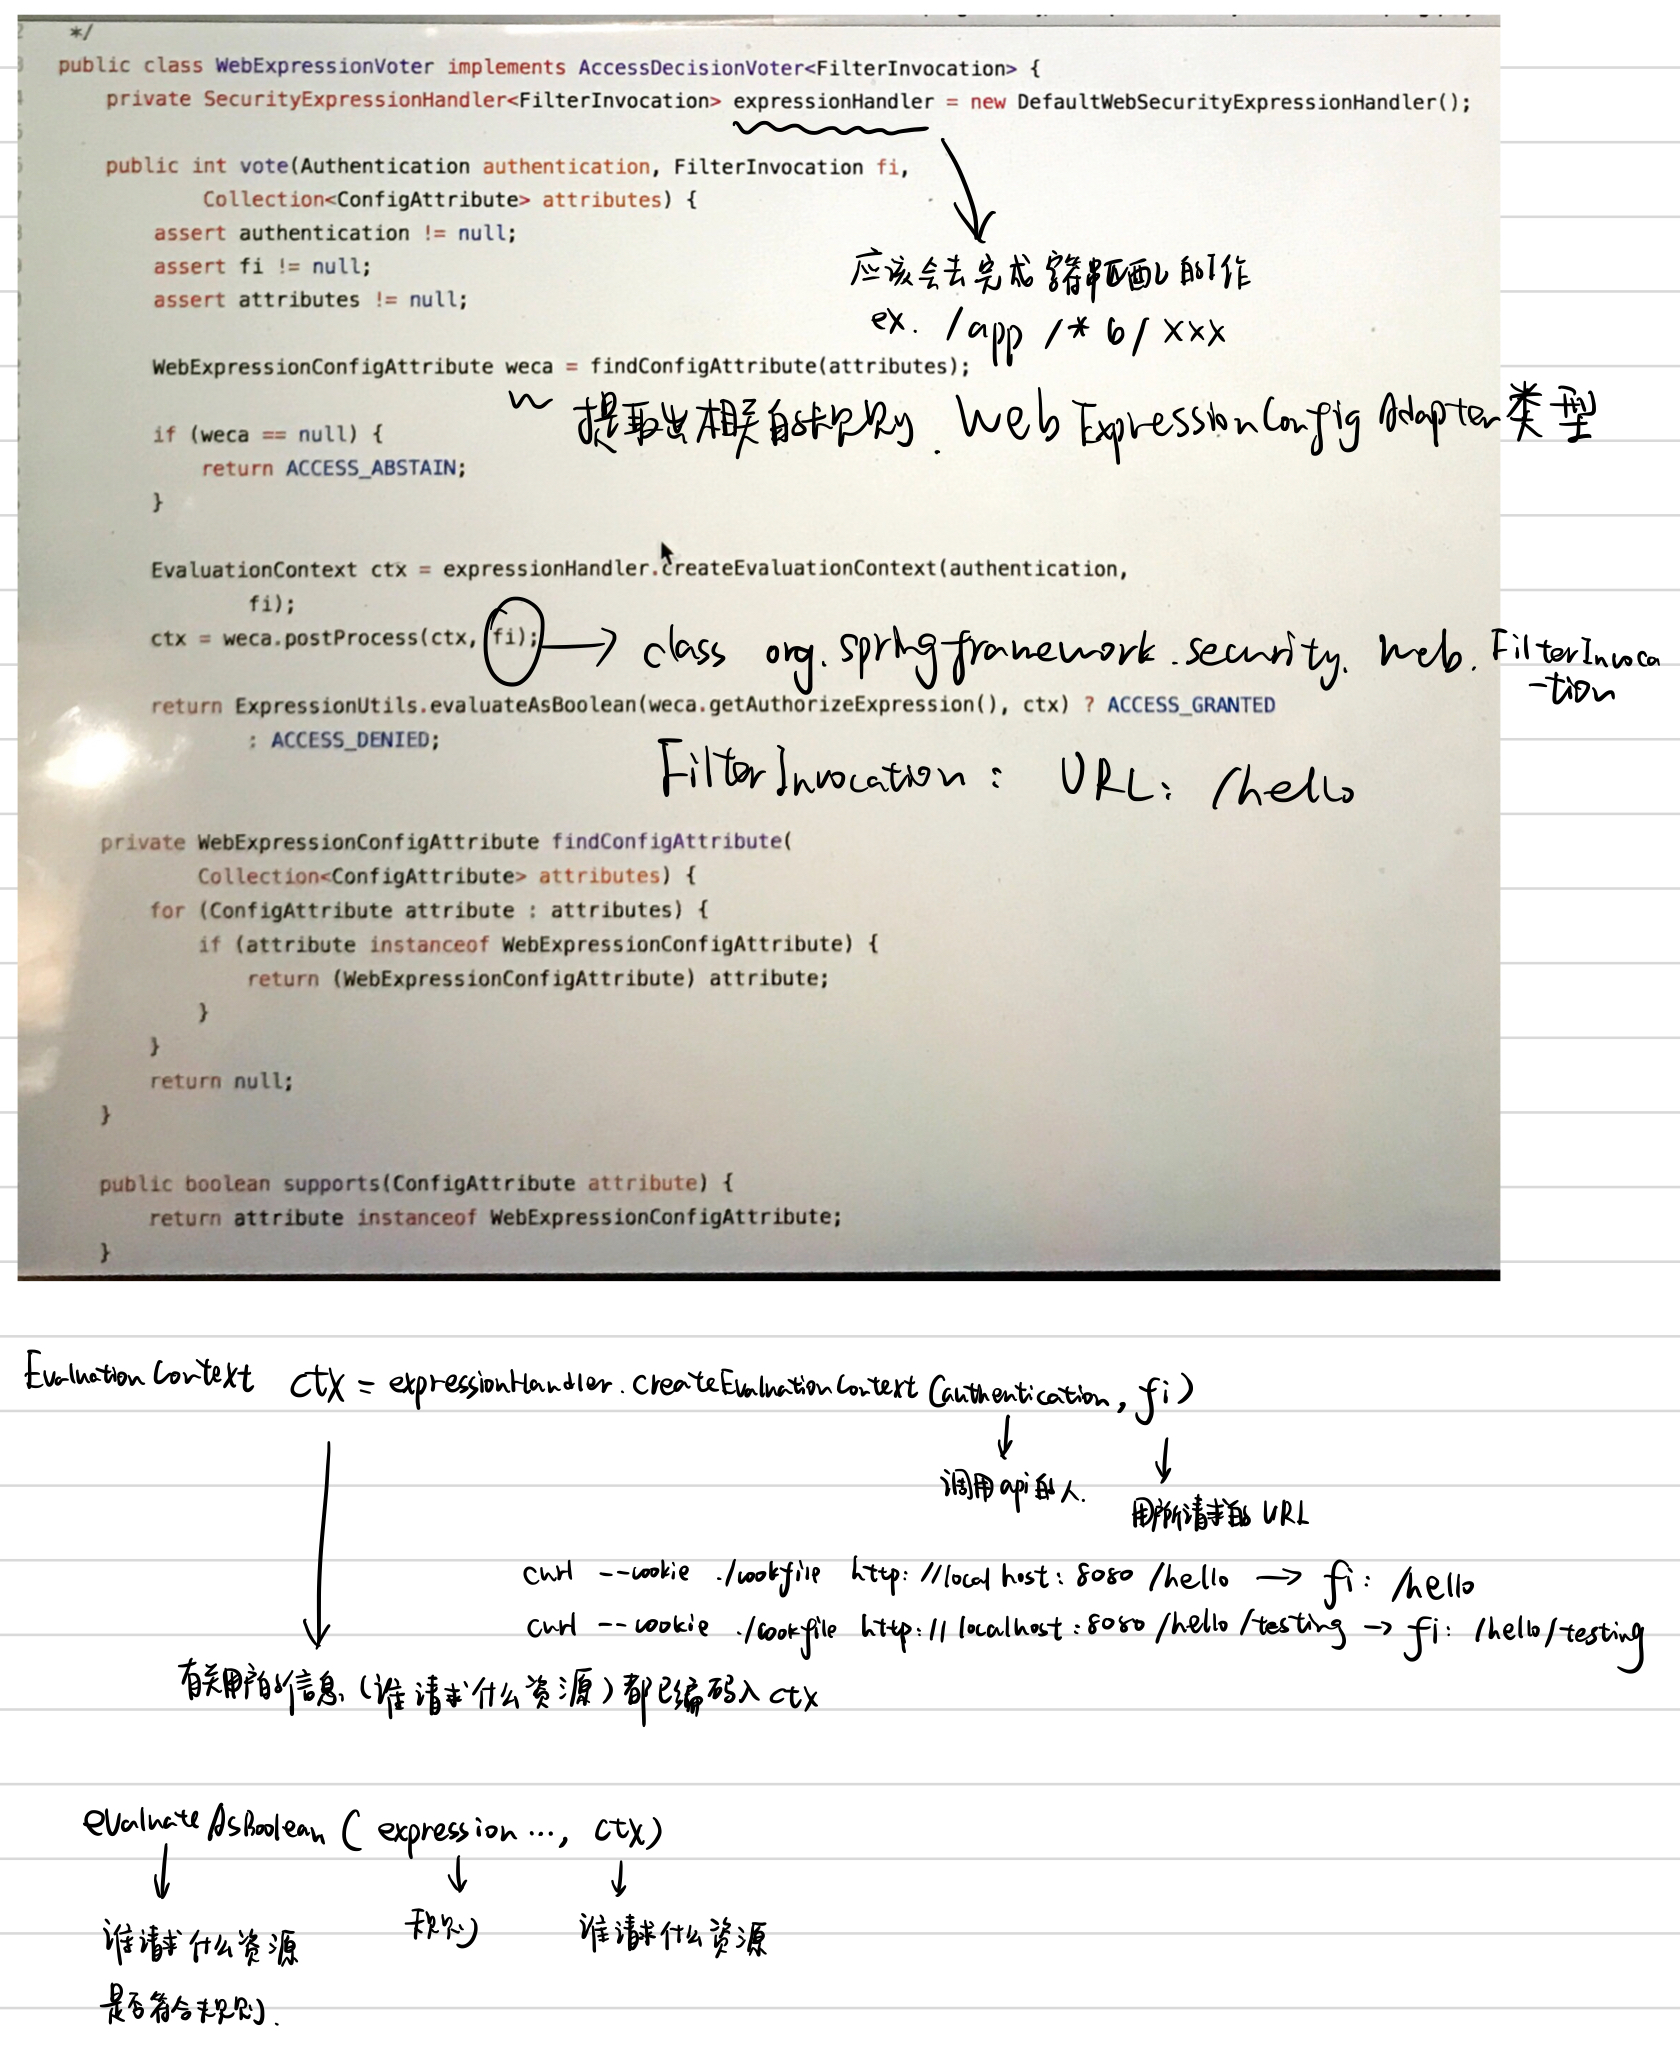 */
public class WebExpressionVoter implements AccessDecisionVoter<FilterInvocation> {
private SecurityExpressionHandler<FilterInvocation> expressionHandler = new DefaultWebSecurityExpressionHandler();
public int vote(Authentication authentication, FilterInvocation fi,
Collection<ConfigAttribute> attributes) {
assert authentication != null;
assert fi != null;
assert attributes != null;
应该会去完成字符串匹配的工作
ex. /app /* 6/ xxx
WebExpressionConfigAttribute weca = findConfigAttribute(attributes);
提取出相关的规则. Web ExpressionConfig Adapter类型
if (weca == null) {
return ACCESS_ABSTAIN;
}
EvaluationContext ctx = expressionHandler.createEvaluationContext(authentication,
fi);
ctx = weca.postProcess(ctx, fi);
class org.springframework.security.web.FilterInvoca
-tion
return ExpressionUtils.evaluateAsBoolean(weca.getAuthorizeExpression(), ctx) ? ACCESS_GRANTED
: ACCESS_DENIED;
FilterInvocation: URL: /hello
private WebExpressionConfigAttribute findConfigAttribute(
Collection<ConfigAttribute> attributes) {
for (ConfigAttribute attribute : attributes) {
if (attribute instanceof WebExpressionConfigAttribute) {
return (WebExpressionConfigAttribute) attribute;
}
}
return null;
}
public boolean supports(ConfigAttribute attribute) {
return attribute instanceof WebExpressionConfigAttribute;
}
Evaluation Context ctx = expressionHandler.createEvaluationContext (authentication, fi)
调用api的人.
用户所请求的 URL
curl --cookie ./cookfile http://localhost:8080/hello → fi: /hello
curl --cookie ./cookfile http://localhost:8080/hello/testing → fi: /hello/testing
有关用户的信息(谁请求什么资源)都已编码入ctx
evaluateAsBoolean ( expression ..., ctx)
谁请求什么资源
是否符合规则.
规则
谁请求什么资源